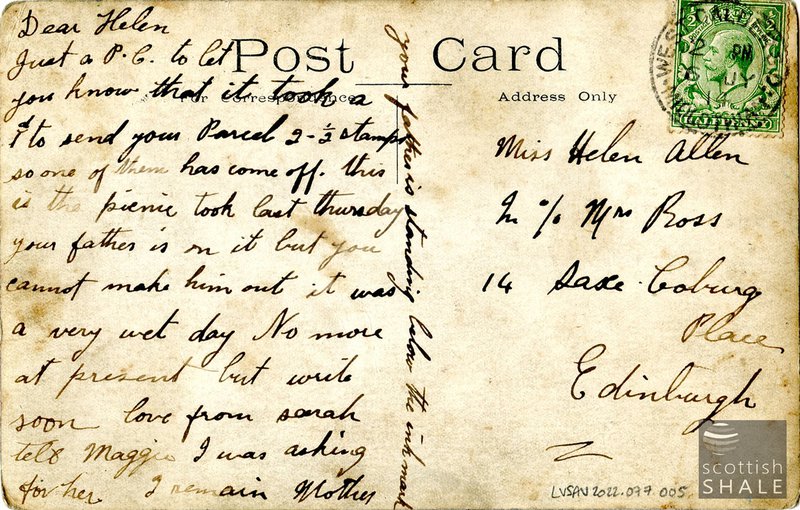 Dear Helen
Just a P.C. to let
you know that it took a
1d to send your Parcel 2-½ stamps
so one of them has come off. this
is the picnic took last thursday
your father is on it but you
cannot make him out it was
a very wet day No more
at present but write
soon love from sarah
tell Maggie I was asking
for her I remain Mother
your father is standing below the ink mark
Post Card
For Correspondence
Address Only
Miss Helen Allen
In c/o Mrs Ross
14 Saxe Coburg
Place
Edinburgh
WEST CALDER
PM
JY
LVSAV2022.077.005
scottish
SHALE